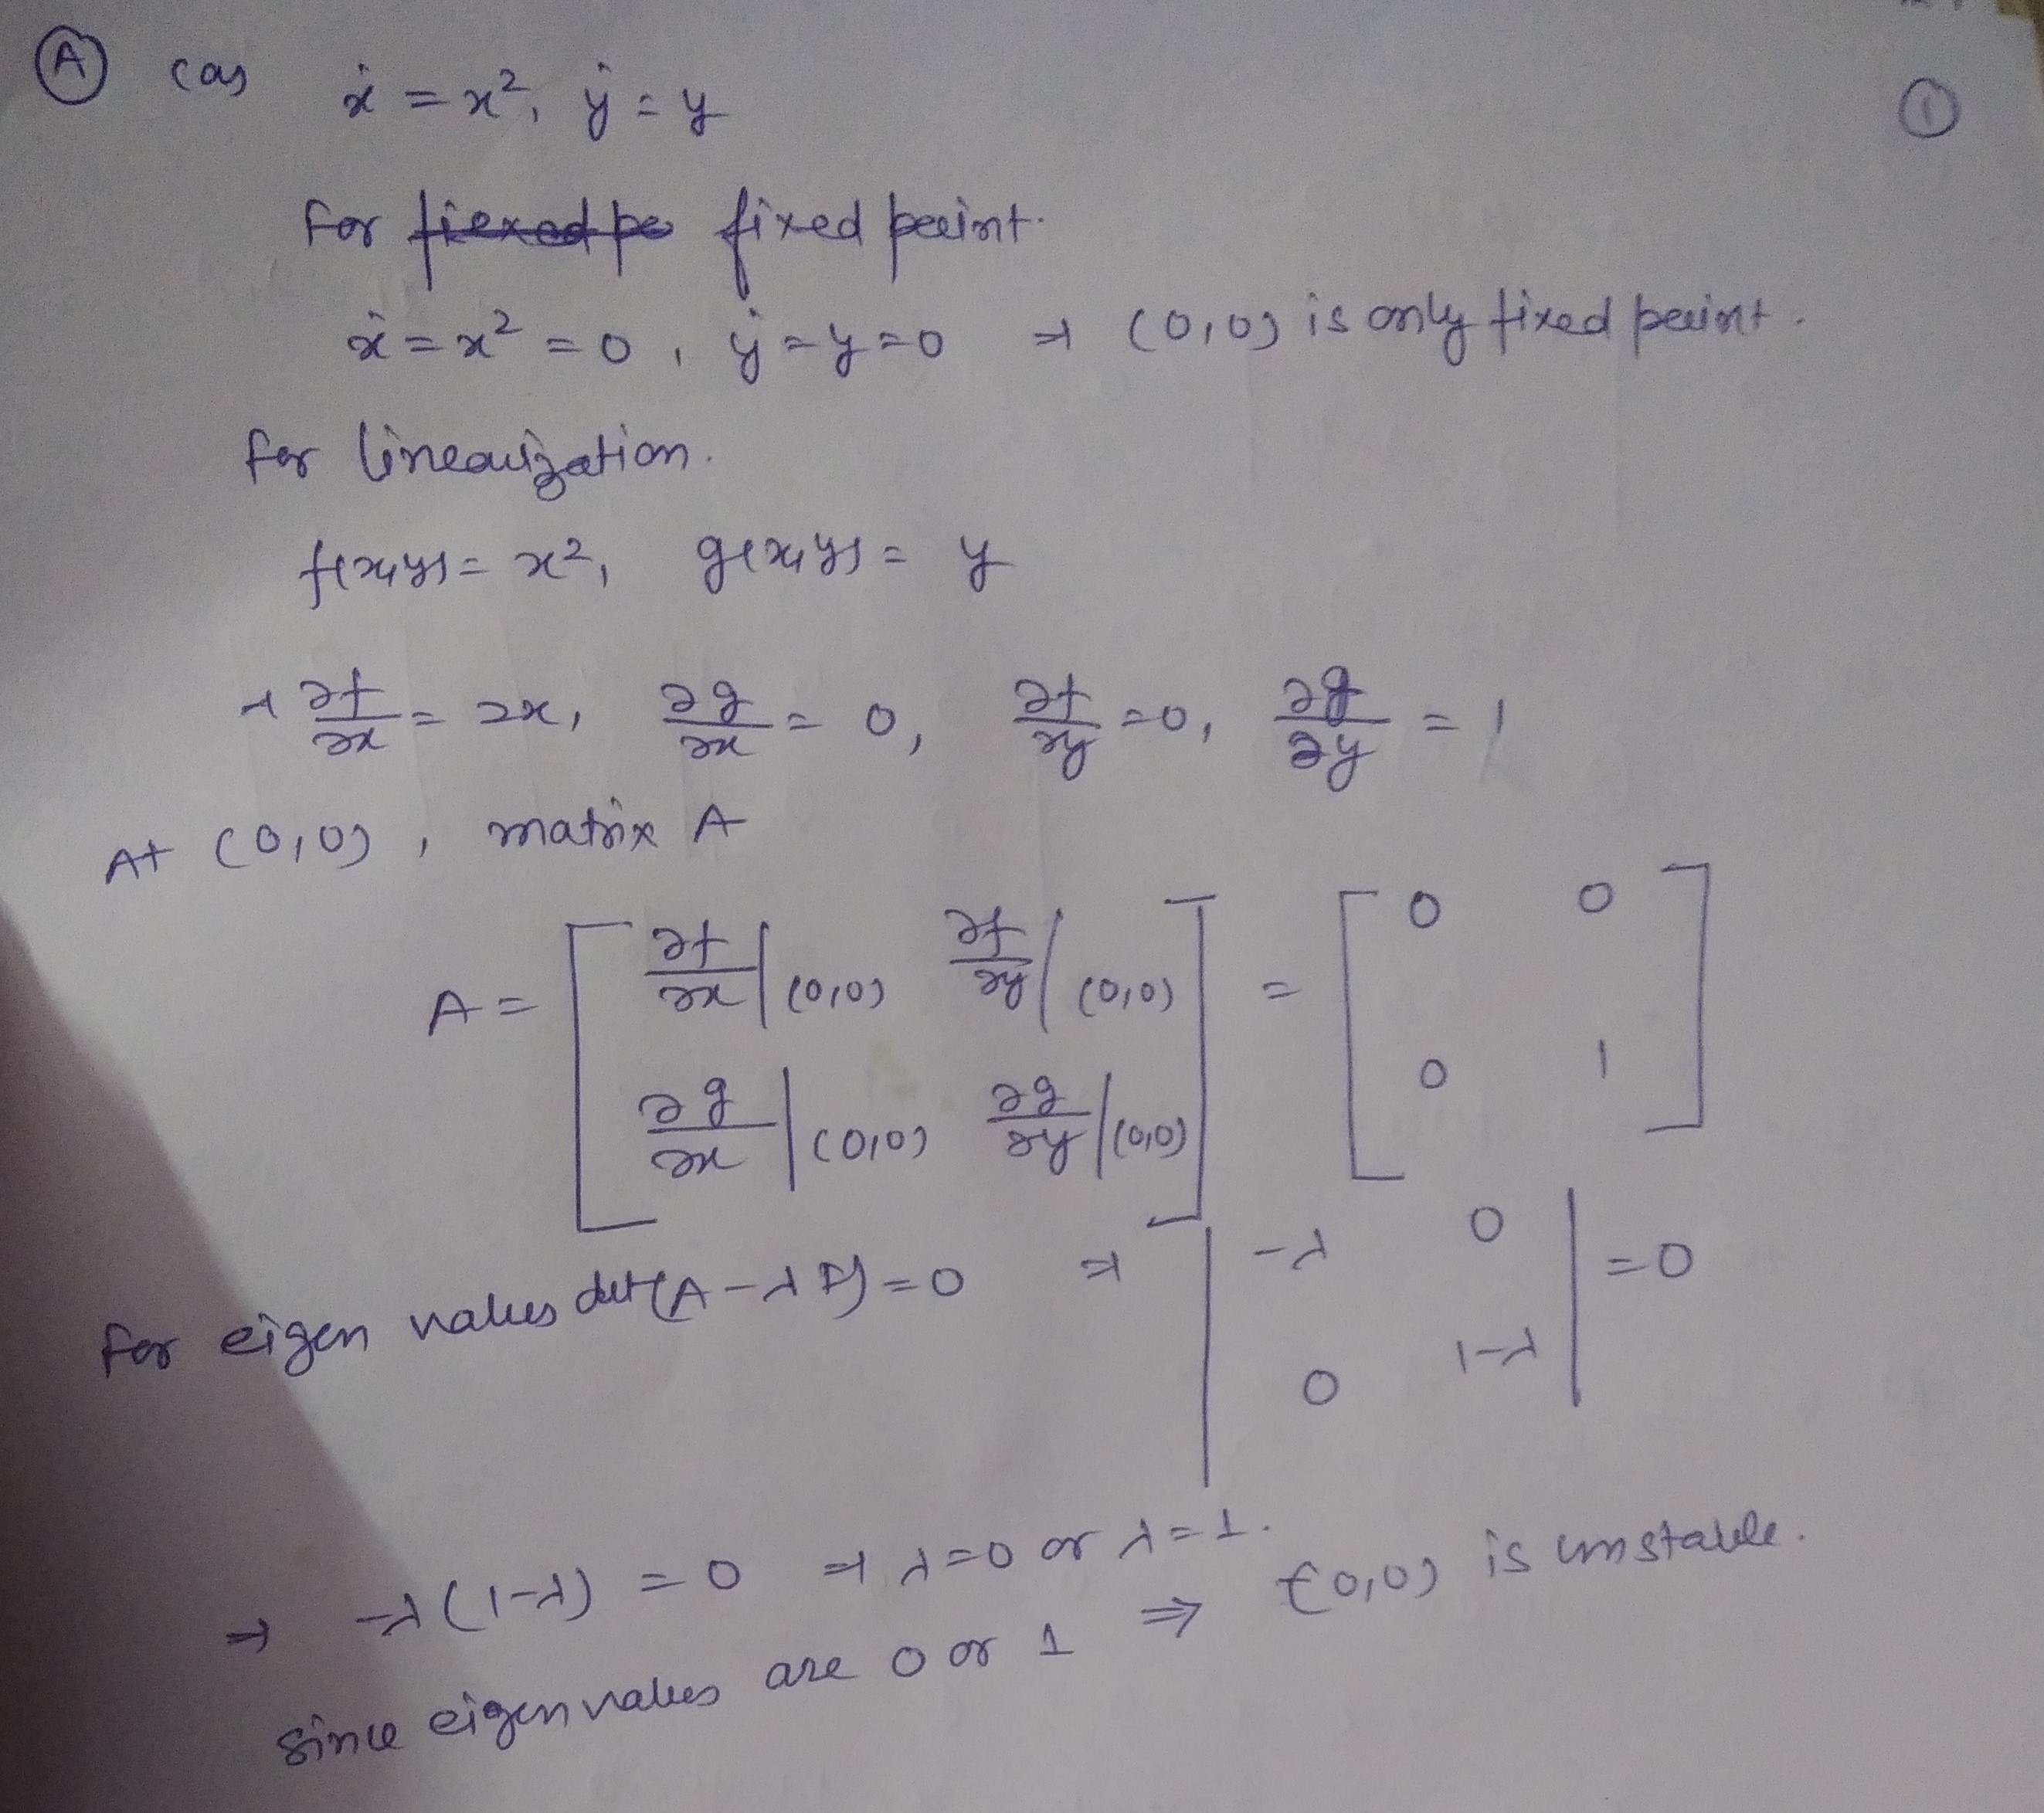 Ⓐ (a) ẋ = x², ẏ = y
①
For fiexed po fixed point.
ẋ = x² = 0, ẏ = y = 0 ⇒ (0,0) is only fixed point.
for linearization.
f(x,y) = x², g(x,y) = y
⇒ ∂f/∂x = 2x, ∂g/∂x = 0, ∂f/∂y = 0, ∂g/∂y = 1
At (0,0), matrix A
A = [ ∂f/∂x|(0,0) ∂f/∂y|(0,0) ] = [ 0 0 ]
[ ∂g/∂x|(0,0) ∂g/∂y|(0,0) ] [ 0 1 ]
For eigen values det(A-λI) = 0 ⇒ | -λ 0 | = 0
| 0 1-λ |
⇒ -λ(1-λ) = 0 ⇒ λ = 0 or λ = 1.
since eigen values are 0 or 1 ⇒ (0,0) is unstable.